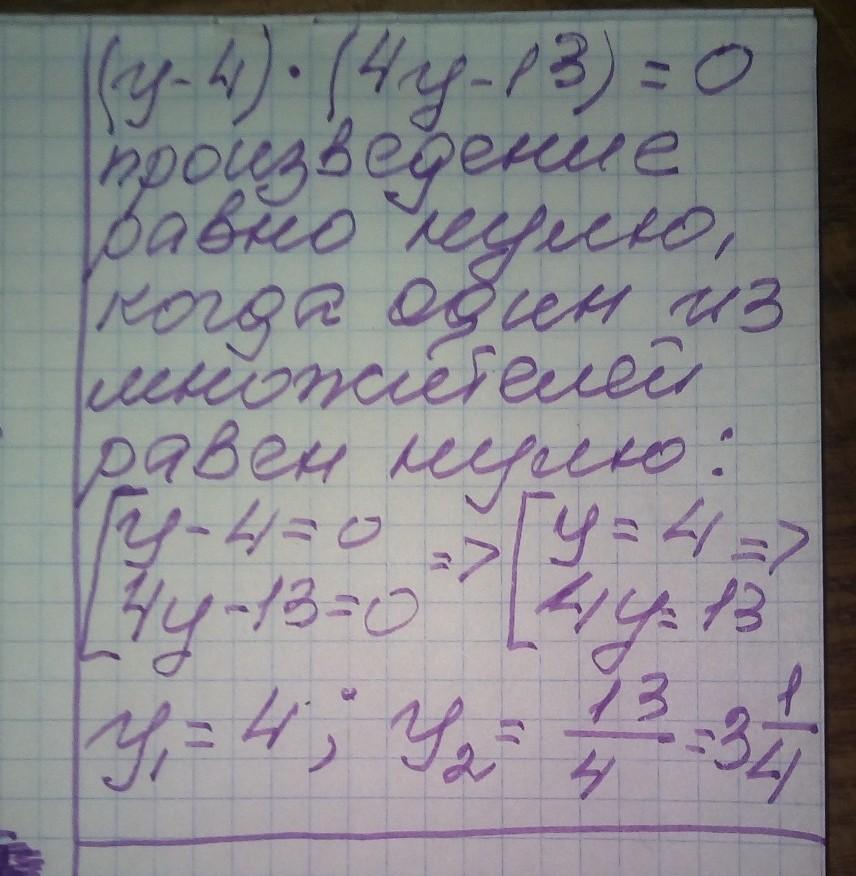 (y-4)·(4y-13)=0
произведение
равно нулю,
когда один из
множителей
равен нулю:
[y-4=0 => [y=4 =>
[4y-13=0 [4y=13
y₁=4; y₂=13/4=3 1/4